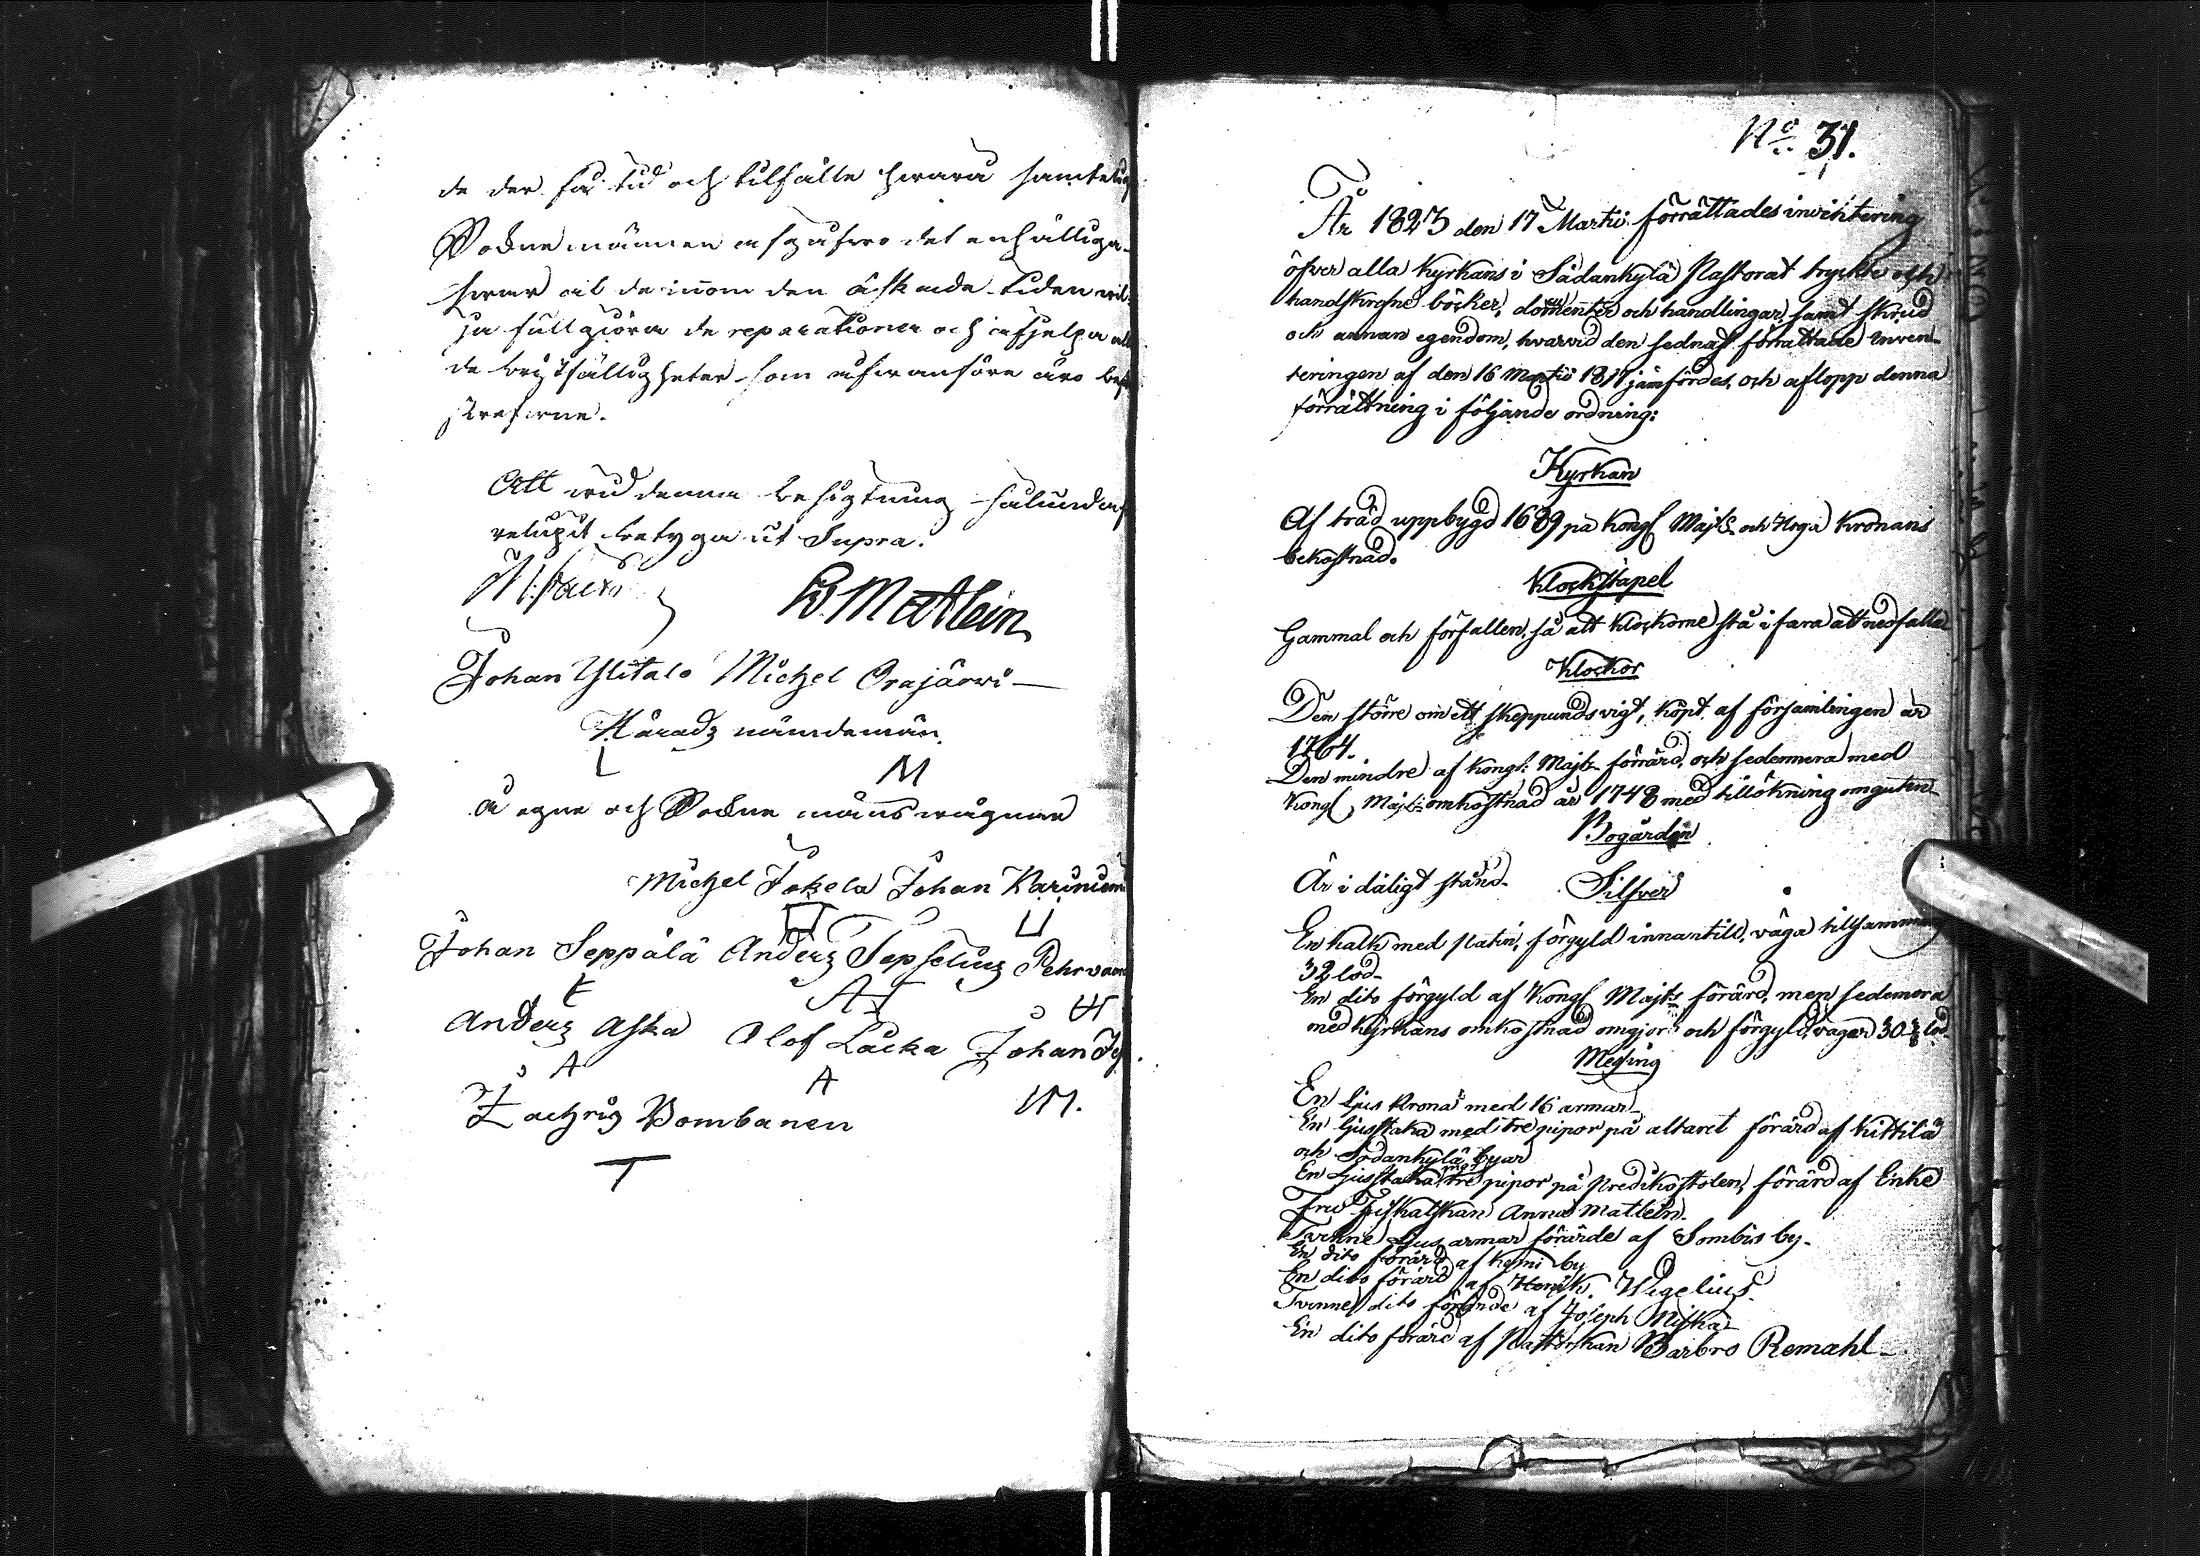 de der få tid och tilfälle swara samtelig
Sockne männen afgufwo det enhälliga
swar at de innom den åskade tiden wil
ja fullgiöra de reparationer och afhjelpa all
de bristfälligheter som ofwanföre äro be
skrefwne.
Att wid denna besigtning sålundas
relupit betyga ut Supra.
B. Matlein
Johan Ylitalo Michel Orajärwi
Härads nämdemän
L M
å egne och Sockne mäns wägnar
Michel Jokela Johan Kariniemi
Johan Seppälä Anders Sepselius Pehr
Anders Aska Olof Låcka Johan
A A M.
Zachris Pombanen
T
No 31.
År 1823 den 17 Martii förrättades inventering
öfver alla Kyrkans i Sådankylä Pastorat tryckte och
handskrefne böcker, documenter och handlingar samt skrud
och annan egendom, hvarvid den sednast förrättade inven-
teringen af den 16 Martii 1817 jämfördes, och aflopp denna
förrättning i följande ordning:
Kyrkan
Af träd uppbygd 1689 på Kongl Majts och Höga Kronans
bekostnad.
Klockstapel
Gammal och förfallen, så att klockorne stå i fara att nedfalla
Klockor
Den större om ett skeppunds vigt, köpt af församlingen år
1764.
Den mindre af Kongl: Majts förärd, och sedermera med
Kongl Majts omkostnad år 1748 med tillökning omguten
Bogården
Är i dåligt stånd.
Silfver
En kalk med Paten, förgyld innantill, väga tillsamman
32 lod.
En dito förgyld af Kongl Majts förärd, men sedermera
med Kyrkans omkostnad omgjord och förgyld, väger 30 lod.
Messing
En ljus Krona med 16 armar
En ljusstaka med tre pipor på altaret förärd af Kittilä
och Sodankylä byar
En Ljusstaka med tre pipor på Predikostolen, förärd af Enke
Fru Fiskalskan Anna Matlein.
Tvenne Ljus armar förärde af Sombio by.
En dito förärd af Kemi by
En dito förärd af Henrik Wigelius.
Tvenne dito förärde af Joseph Niska
En dito förärd af Pastorskan Barbro Remahl